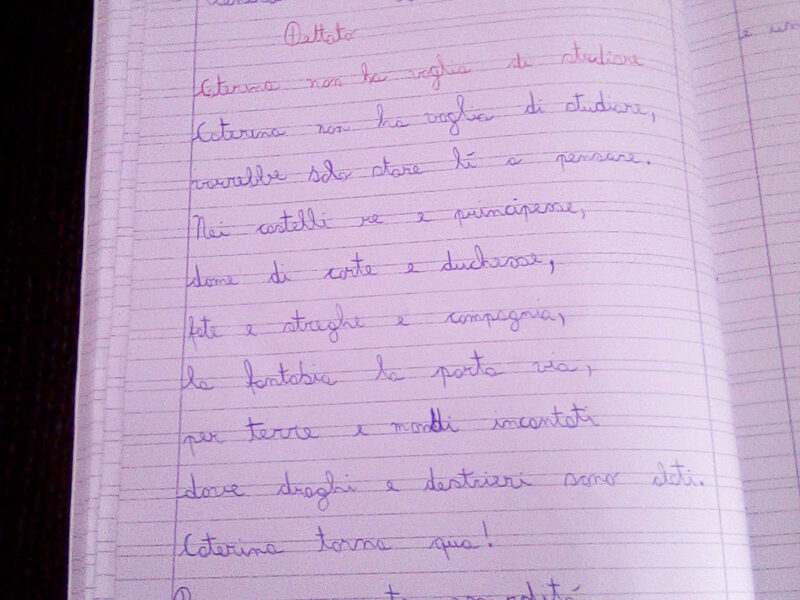 Dettato
Caterina non ha voglia di studiare
Caterina non ha voglia di studiare,
vorrebbe solo stare lí a pensare.
Nei castelli re e principesse,
dame di corte e duchesse,
fate e streghe e compagnia,
la fantasia la porta via,
per terre e mondi incantati
dove draghi e destrieri sono alati.
Caterina torna qua!